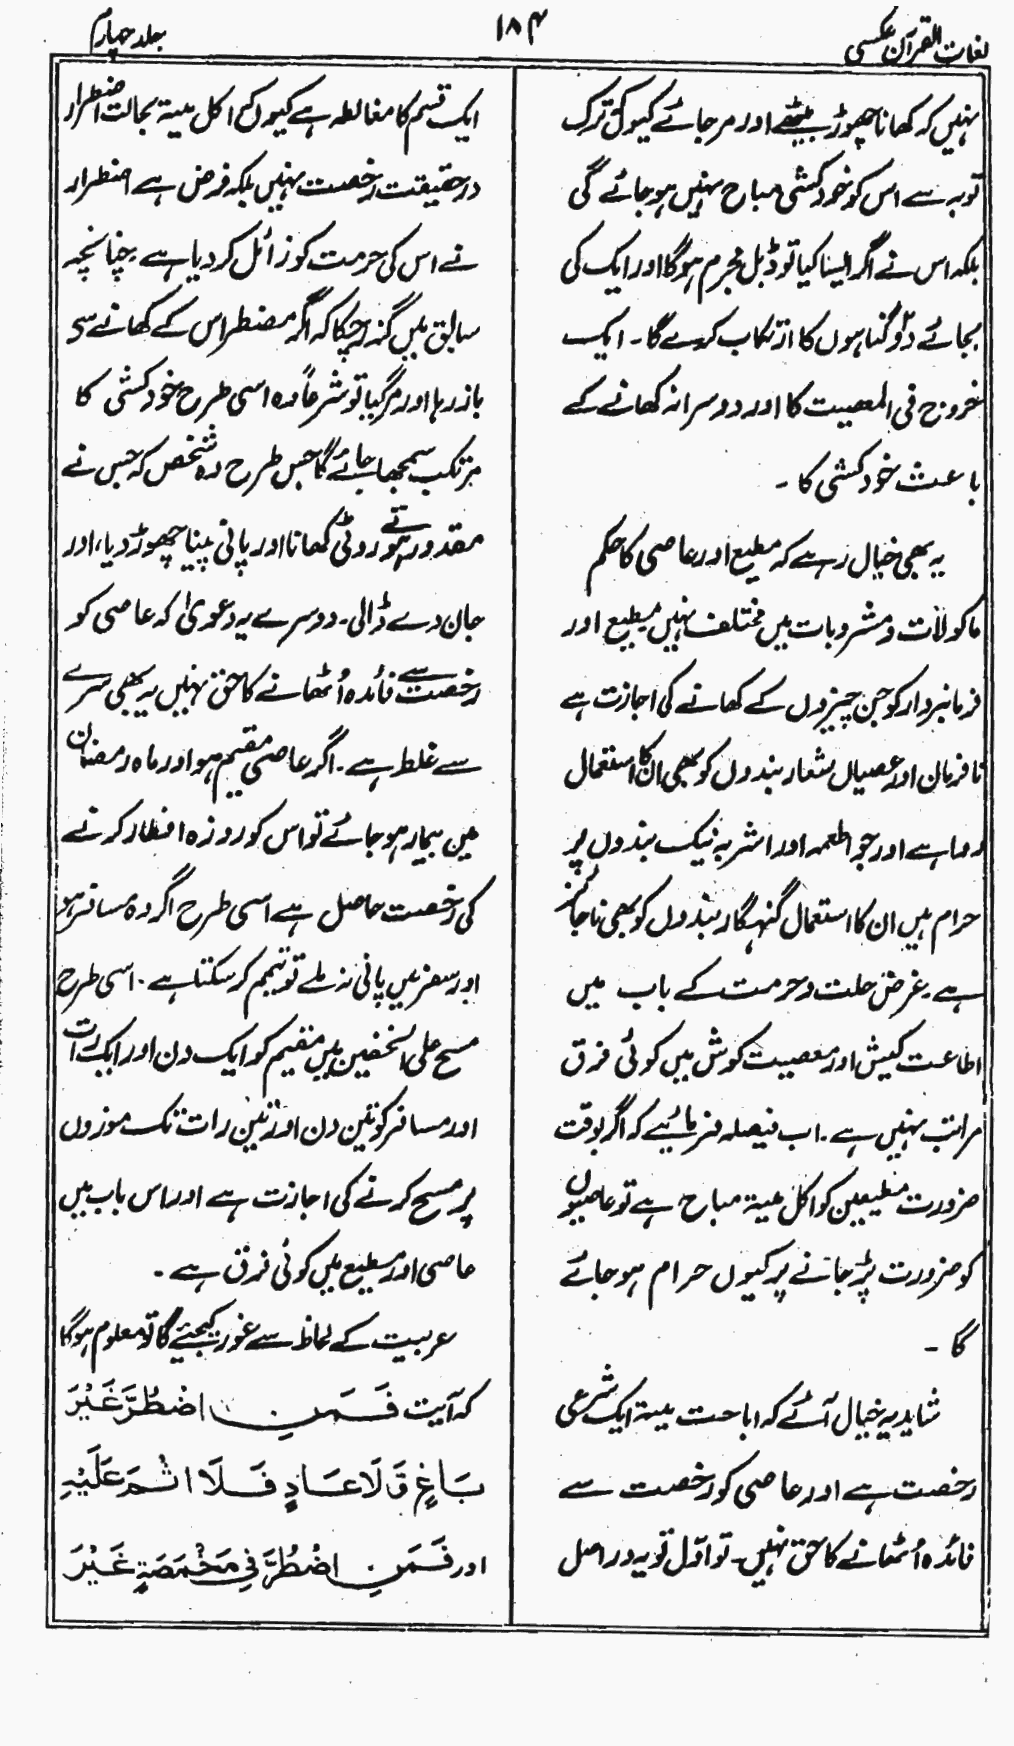 لغات القرآن عکسی
۱۸۴
جلد چہارم
نہیں کہ کھانا چھوڑ بیٹھے اور مر جائے کیونکہ ترک
توبہ سے اس کو خودکشی مباح نہیں ہو جائے گی
بلکہ اس نے اگر ایسا کیا تو ڈبل مجرم ہوگا اور ایک کی
بجائے دو گناہوں کا ارتکاب کرے گا۔ ایک
خروج فی المعصیت کا اور دوسرا نہ کھانے کے
باعث خودکشی کا ۔
یہ بھی خیال رہے کہ مطیع اور عاصی کا حکم
ماکولات و مشروبات میں مختلف نہیں مطیع اور
فرمانبردار کو جن چیزوں کے کھانے کی اجازت ہے
نافرمان اور عصیاں شعار بندوں کو بھی ان کا استعمال
روا ہے اور جو اطعمہ اور اشربہ نیک بندوں پر
حرام ہیں ان کا استعمال گنہگار بندوں کو بھی ناجائز
ہے۔ غرض حلت و حرمت کے باب میں
اطاعت کیش اور معصیت کوش میں کوئی فرق
مراتب نہیں ہے۔ اب فیصلہ فرمائیے کہ اگر بوقت
ضرورت مطیعین کو اکل میتہ مباح ہے تو عاصیوں
کو ضرورت پڑ جانے پر کیوں حرام ہو جائے
گا ۔
شاید یہ خیال آئے کہ اباحت میتہ ایک شرعی
رخصت ہے اور عاصی کو رخصت سے
فائدہ اُٹھانے کا حق نہیں۔ تو اوّل تو یہ دراصل
ایک قسم کا مغالطہ ہے کیوں کہ اکل میتہ بحالت اضطرار
درحقیقت رخصت نہیں بلکہ فرض ہے اضطرار
نے اس کی حرمت کو زائل کر دیا ہے۔ چنانچہ
سابق میں گذر چکا کہ اگر مضطر اس کے کھانے سے
باز رہا اور مر گیا تو شرعاً وہ اسی طرح خودکشی کا
مرتکب سمجھا جائے گا جس طرح وہ شخص کہ جس نے
مقدور ہوتے روٹی کھانا اور پانی پینا چھوڑ دیا، اور
جان دے ڈالی۔ دوسرے یہ دعویٰ کہ عاصی کو
رخصت سے فائدہ اُٹھانے کا حق نہیں یہ بھی سرے
سے غلط ہے۔ اگر عاصی مقیم ہو اور ماہ رمضان
میں بیمار ہو جائے تو اس کو روزہ افطار کرنے
کی رخصت حاصل ہے اسی طرح اگر وہ مسافر ہو
اور سفر میں پانی نہ ملے تو تیمم کر سکتا ہے۔ اسی طرح
مسح علی الخفین میں مقیم کو ایک دن اور ایک رات
اور مسافر کو تین دن اور تین رات تک موزوں
پر مسح کرنے کی اجازت ہے اور اس باب میں
عاصی اور مطیع میں کوئی فرق ہے ۔
عربیت کے لحاظ سے غور کیجئے گا تو معلوم ہوگا
کہ آیت فَمَنِ اضْطُرَّ غَيْرَ
بَاغٍ وَّلَا عَادٍ فَلَا اثْمَ عَلَيْهِ
اور فَمَنِ اضْطُرَّ فِی مَخْمَصَةٍ غَيْرَ